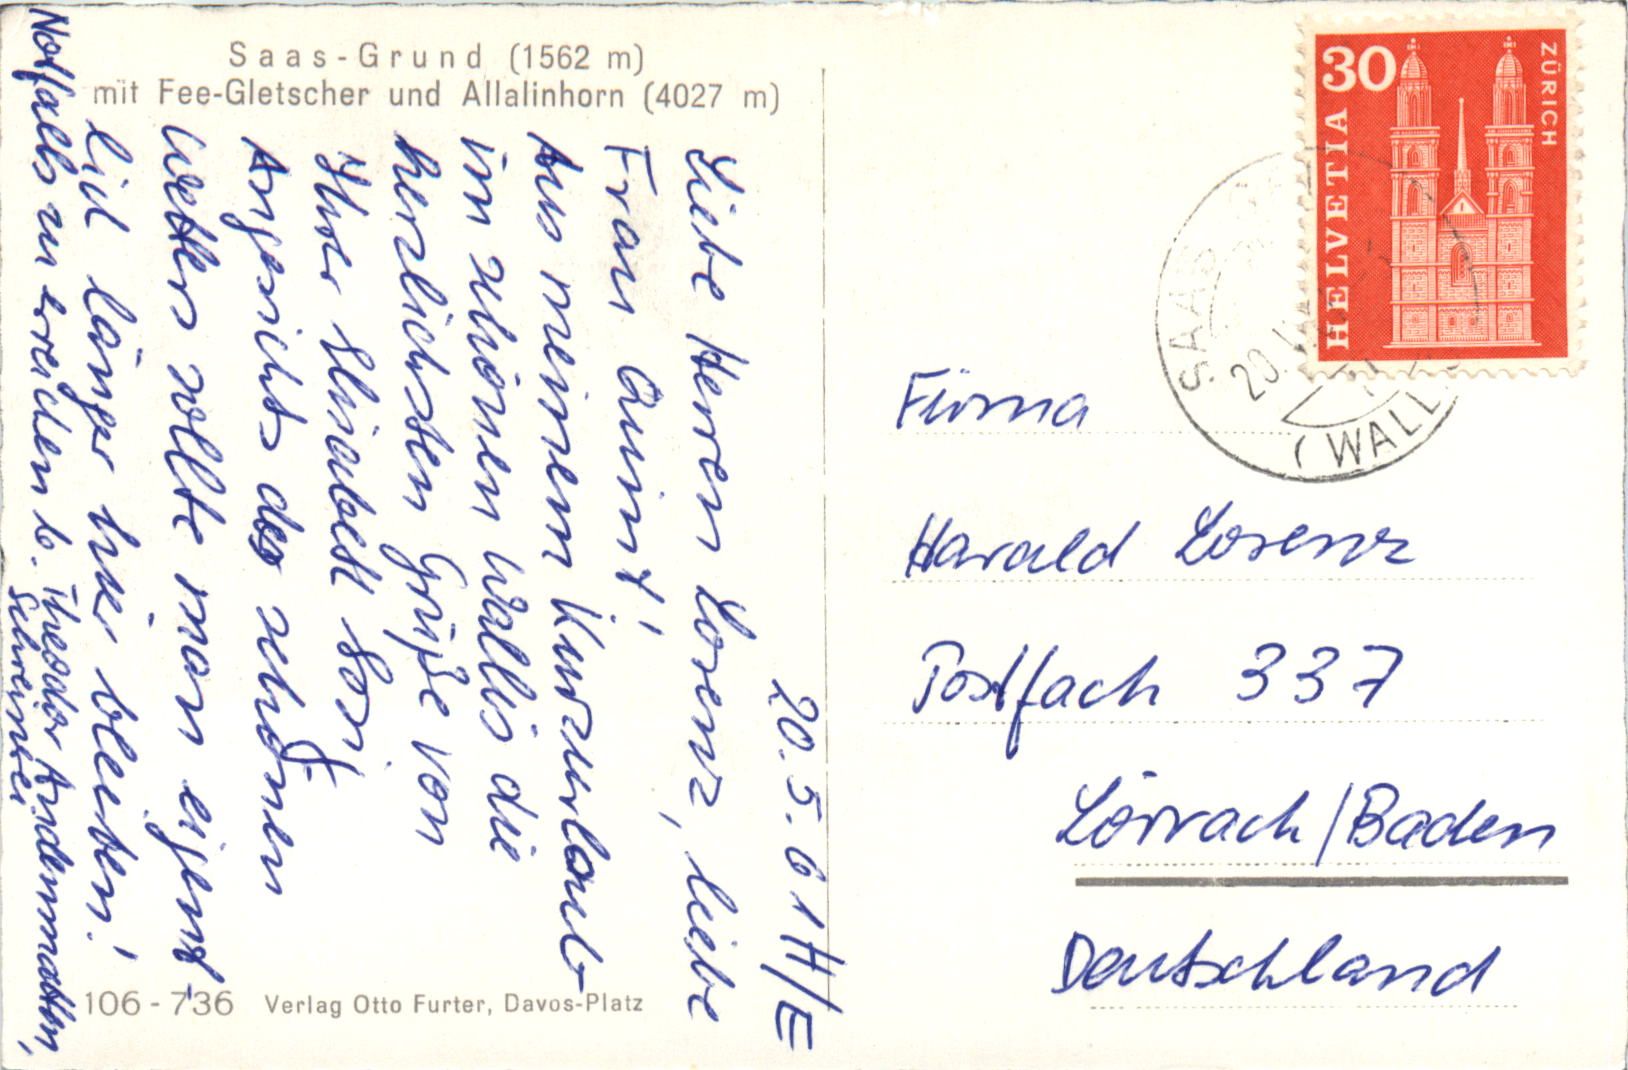 Saas-Grund (1562 m)
mit Fee-Gletscher und Allalinhorn (4027 m)
20.5.61 H/E
Liebe Herren Lorenz, liebe
Frau Quint!
Aus meinem Kurzurlaub
im schönen Wallis die
herzlichsten Grüße von
Ihrer
Angesichts des schönen
Wetters sollte man eigent-
lich länger hier bleiben!
Notfalls zu erreichen b. Theodor Andenmatten,
Schreinerei
106-736 Verlag Otto Furter, Davos-Platz
30
HELVETIA
ZÜRICH
SAAS
20.
(WALL
Firma
Harald Lorenz
Postfach 337
Lörrach/Baden
Deutschland